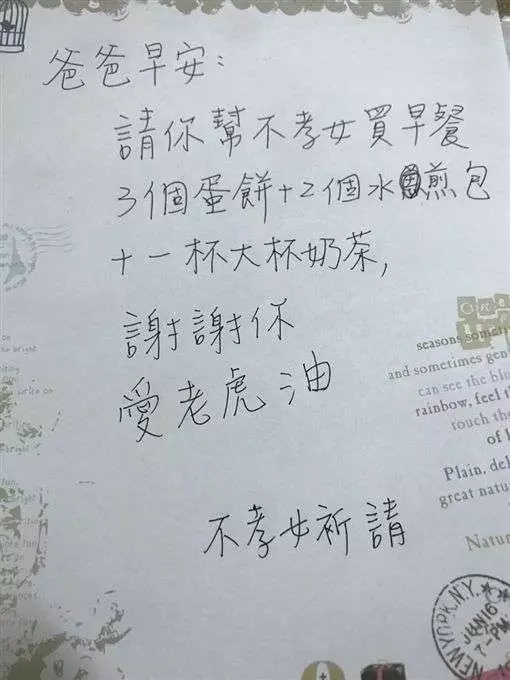 爸爸早安：
請你幫不孝女買早餐
3個蛋餅+2個水煎包
+一杯大杯奶茶，
謝謝你
愛老虎油
不孝女祈請
seasons
and sometimes
can see the
rainbow, feel
touch the
of
Plain,
great
NEW YORK, N.Y.
JUN 16
7 PM